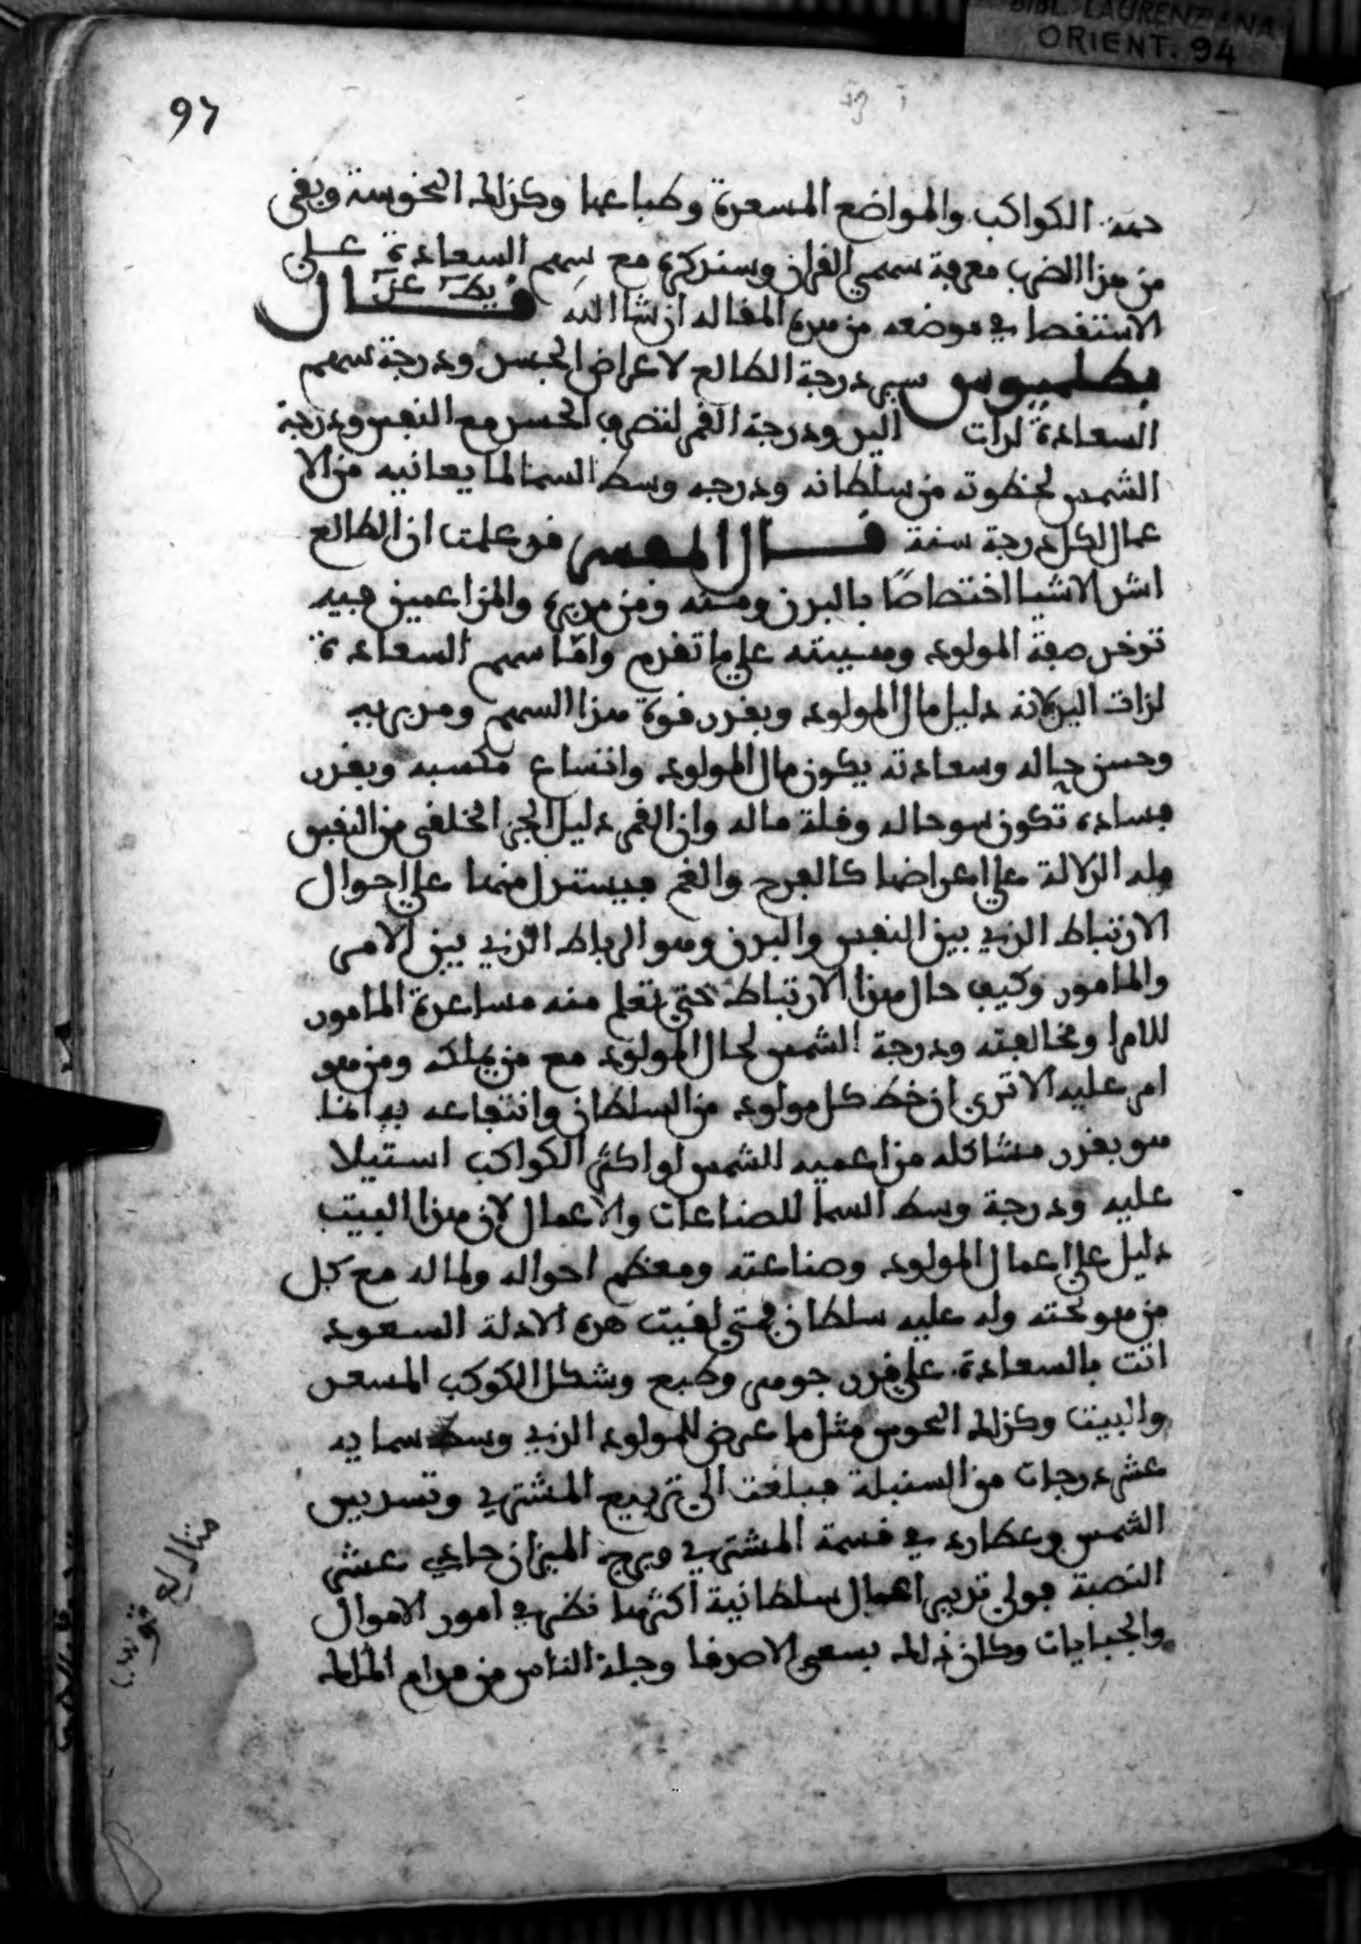 BIBL. LAURENZIANA
ORIENT. 94
97
الكواكب والمواضع المسعدة وطباعها وكذلك النحوسة وبقى
من هذا الضرب معرفة سهمي القران وسنذكره مع سهم السعادة على
الاستقصا في موضعه من هذه المقاله ان شا الله قـــال
بطلميوس سير درجة الطالع لاعراض الجسد ودرجة سهم
السعادة لذات اليد ودرجة القمر لتصرف الجسد مع النفس ودرجة
الشمس لحظوته من سلطانه ودرجه وسط السما لما يعانيه من الا
عمال لكل درجة سنة قـــال المفسر قد علمت ان الطالع
اشد الاشيا اختصاصا بالبدن ومنه ومن مدبره والمزاعمين فيه
توخذ صفة المولود وهيئته على ما تقدم واما سهم السعادة
لذات اليد لانه دليل مال المولود وبقدر قوة هذا السهم ومدبريه
وحسن حاله وسعادته يكون مال المولود واتساع مكسبه وبقدر
فساده تكون سو حاله وقلة ماله وان القمر دليل الجز الخلقي من النفس
وله الدلالة على اعراضها كالفرح والغم فيستدل منها على احوال
الارتباط الذي بين النفس والبدن وهو الرباط الذي بين الامر
والمامور وكيف حال هذا الارتباط حتى تعلم منه مساعدة المامور
للامر ومخالفته ودرجة الشمس لحال المولود مع من يملكه ومن هو
امر عليه الا ترى ان حظ كل مولود من السلطان وانتفاعه به انما
هو بقدر مشاكله مزاعميه للشمس او اكثر الكواكب استيلا
عليه ودرجة وسط السما للصناعات والاعمال لان هذا البيت
دليل على اعمال المولود وصناعته ومعظم احواله ولماله مع كل
من هو تحته وله عليه سلطان فمتى لقيت هذه الادلة السعود
اتت بالسعادة على قدر جوهر وطبع وشكل الكوكب المسعد
والبيت وكذلك النحوس مثل ما عرض للمولود الذي وسط سمايه
عشر درجات من السنبلة فبلغت الى تربيع المشتري وتسديس
الشمس وعطارد في قسمة المشتري وبرج الميزان حادي عشر
النصبة فولي تدبير اعمال سلطانية اكثرها نظر في امور الاموال
والجبايات وكان ذلك بسعي الاصدقا وجلة الناس من خدام الملك